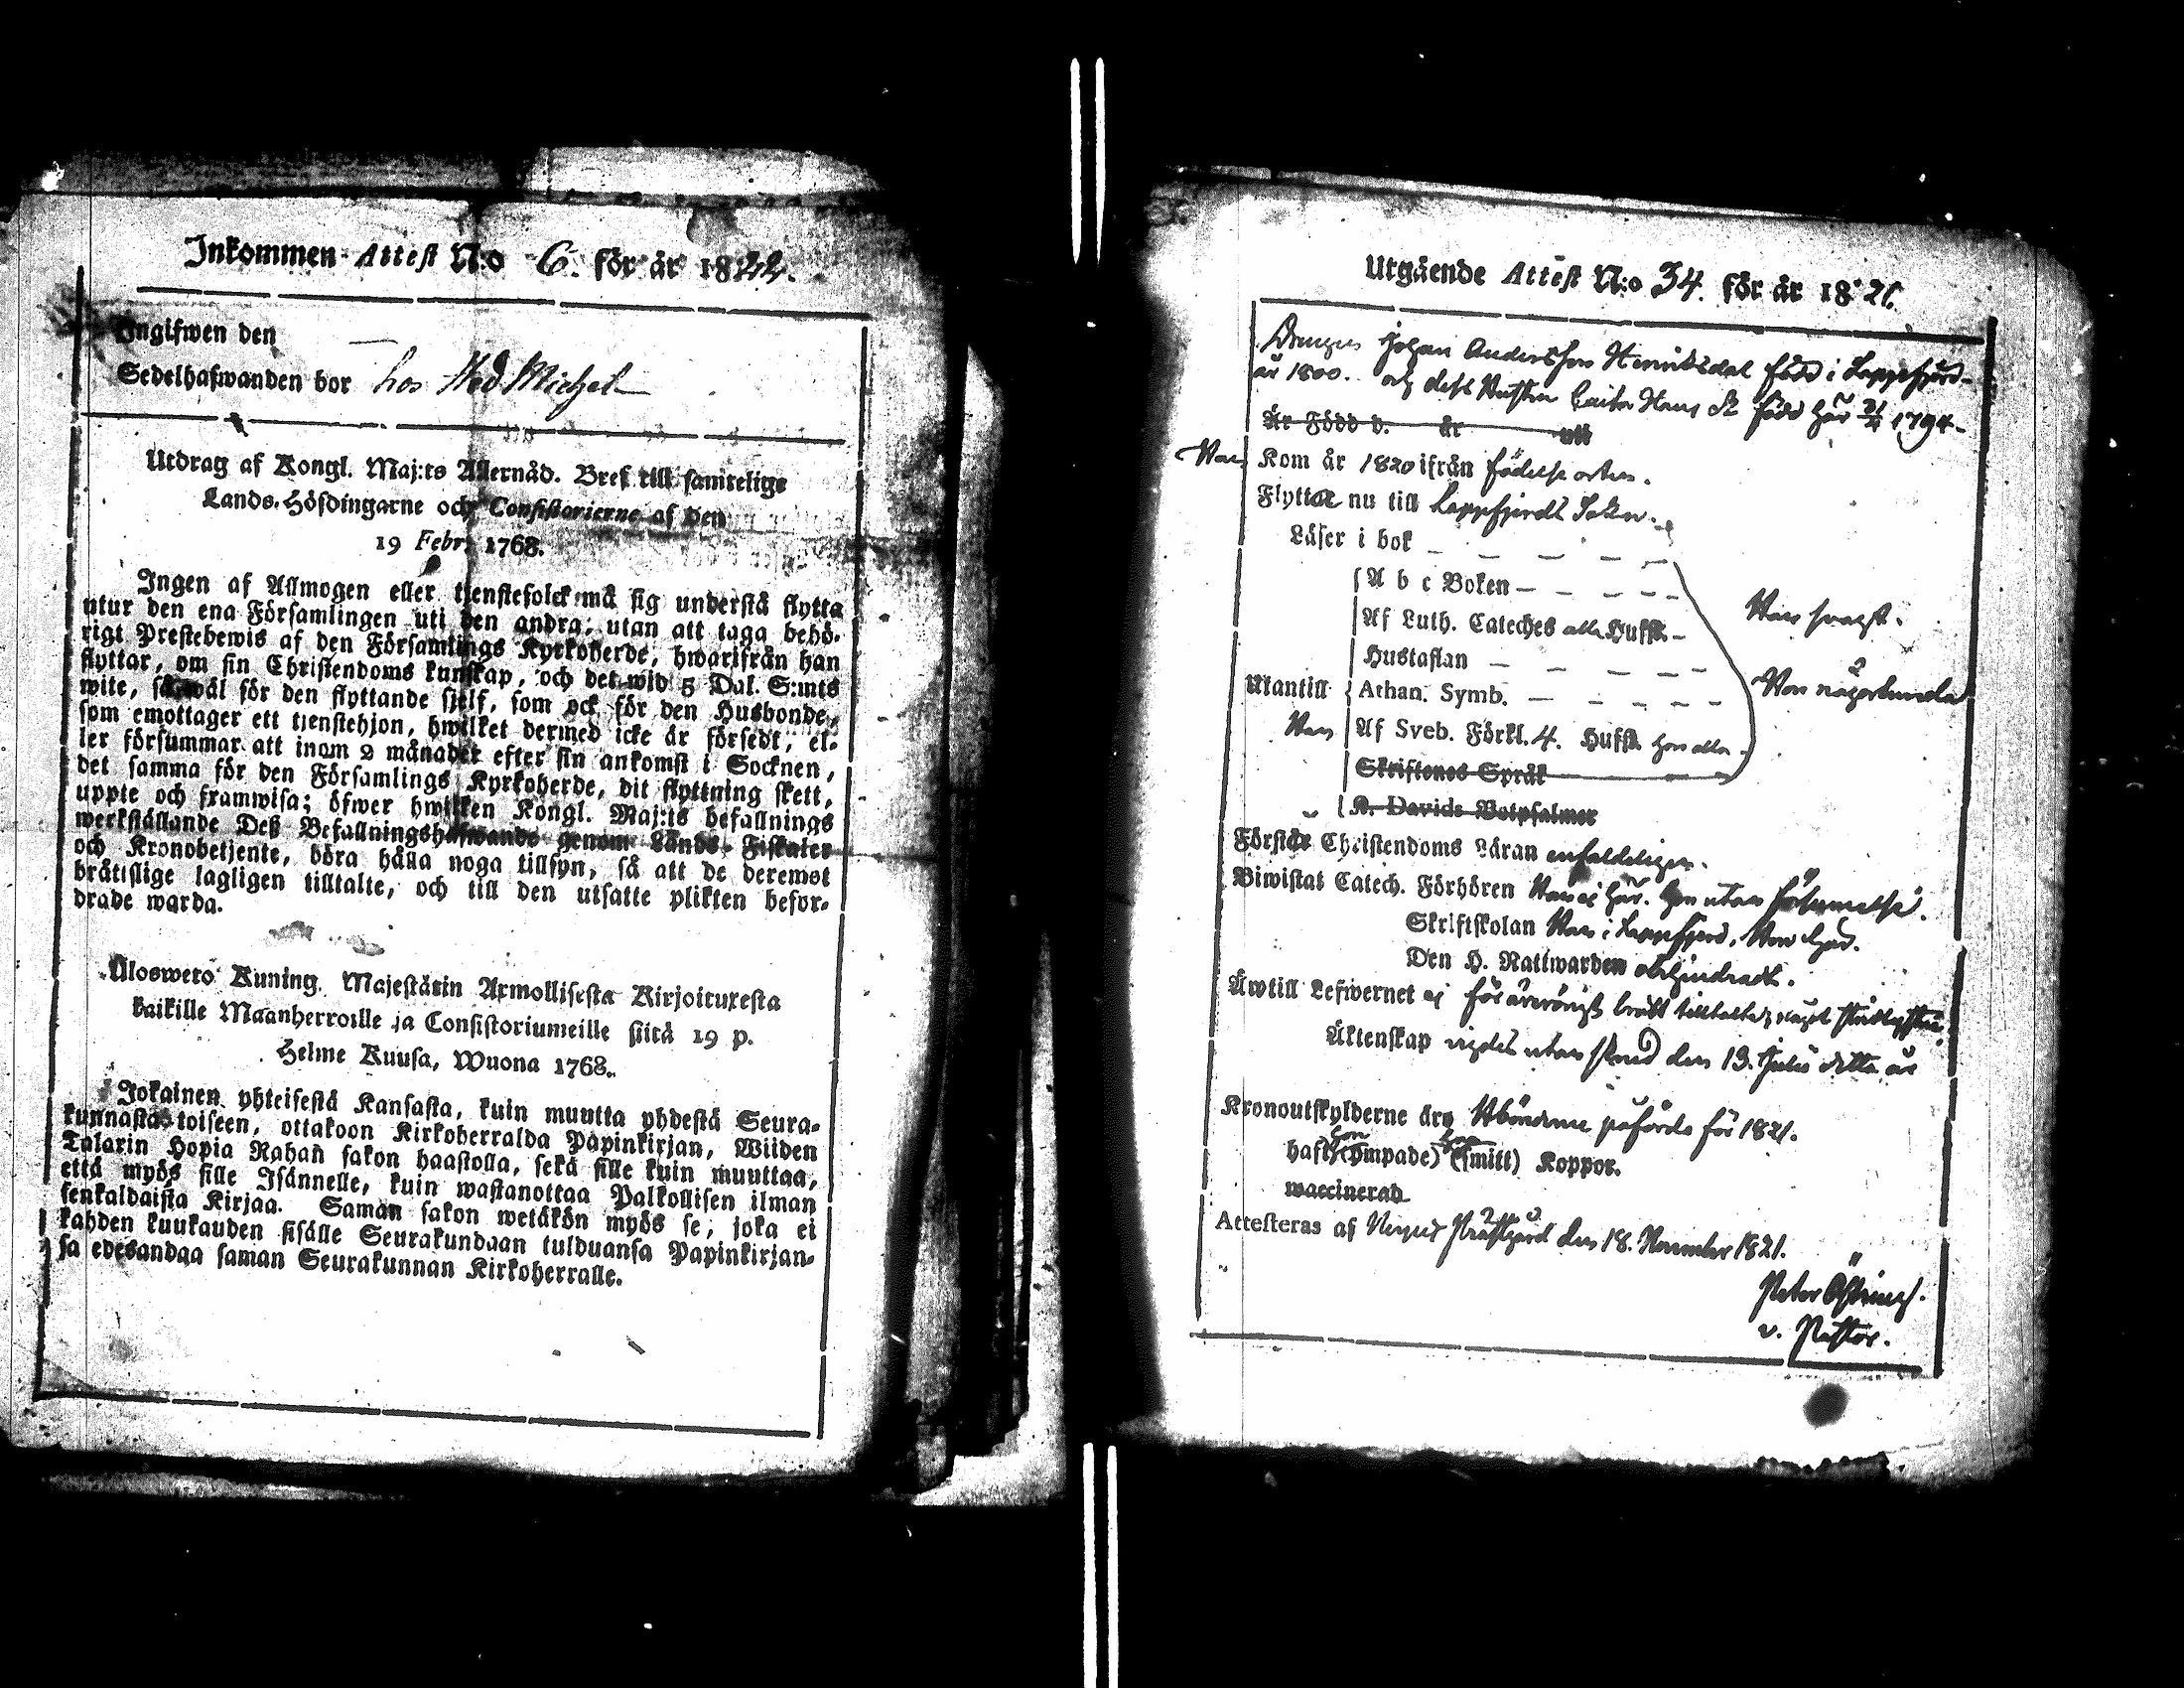 Inkommen Attest N:o 6. för år 1822.
Ingifwen den
Sedelhafwanden bor hos Ned Michel
Utdrag af Kongl. Maj:ts Allernåd. Bref till samtelige
Lands-Höfdingarne och Consistorierne af den
19 Febr. 1768.
Ingen af Allmogen eller tjenstefolck må sig understå flytta
utur den ena Församlingen uti den andra, utan att taga behö-
rigt Prestebewis af den Församlings Kyrkoherde, hwarifrån han
flyttar, om sin Christendoms kunskap, och det wid 5 Dal. S:mts
wite, så wäl för den flyttande sjelf, som ock för den Husbonde,
som emottager ett tjenstehjon, hwilket dermed icke är försedt, el-
ler försummar att inom 2 månader efter sin ankomst i Socknen,
det samma för den Församlings Kyrkoherde, dit flyttning skett,
uppte och framwisa; öfwer hwilken Kongl. Maj:ts befallnings
werkställande Deß Befallningshafwande genom Lands-Fiskaler
och Kronobetjente, böra hålla noga tillsyn, så att de deremot
bråttslige lagligen tilltalte, och till den utsatte plikten befor-
drade warda.
Ulosweto Kuning. Majestätin Armollisesta Kirjoituxesta
kaikille Maanherroille ja Consistoriumeille siitä 19 p.
Helme Kuusa, Wuona 1768.
Jokainen yhteisestä Kansasta, kuin muutta yhdestä Seura-
kunnasta toiseen, ottakoon Kirkoherralda Papinkirjan, Wiiden
Talarin Hopia Rahan sakon haastolla, sekä sille kuin muuttaa,
että myös sille Isännelle, kuin wastanottaa Palkollisen ilman
senkaldaista Kirjaa. Saman sakon wetäkön myös se, joka ei
kahden kuukauden sisälle Seurakundaan tulduansa Papinkirjan-
sa edesandaa saman Seurakunnan Kirkoherralle.
Utgående Attest N:o 34. för år 1821.
Drengen Johan Andersson Henriksdal född i Lappfjerd
år 1800. och dess Hustru Caisa Hans Dr född här 21/4 1794
Är Född d. år uti
Han Kom år 1820 ifrån födelse orten.
Flyttar nu till Lappfjerds Soken.
Läser i bok
A b c Boken
Han svagt.
Af Luth. Cateches alla Hufst.
Hustaflan
Utantill Athan. Symb.
Hon någorlunda
Han Af Sveb. Förkl. 4. Hufst. hon alla.
Skriftenes Språk
K. Davids Botpsalmer
Förstår Christendoms Läran enfaldeligen.
Biwistat Catech. Förhören Han ej här. hon utan försummelse.
Skriftskolan Han i Lappfjerd, Hon här.
Den H. Nattwarden obehindradt.
Äro till Lefwernet ej för ärerörigt brott tilltalte,
Äktenskap den 13. Julii detta år
Kronoutskylderne äro påförde för 1821.
haft (ympade) (smitt) Koppor.
waccinerad
Attesteras af Prästgård den 18. November 1821.
Peter
v. Pastor.